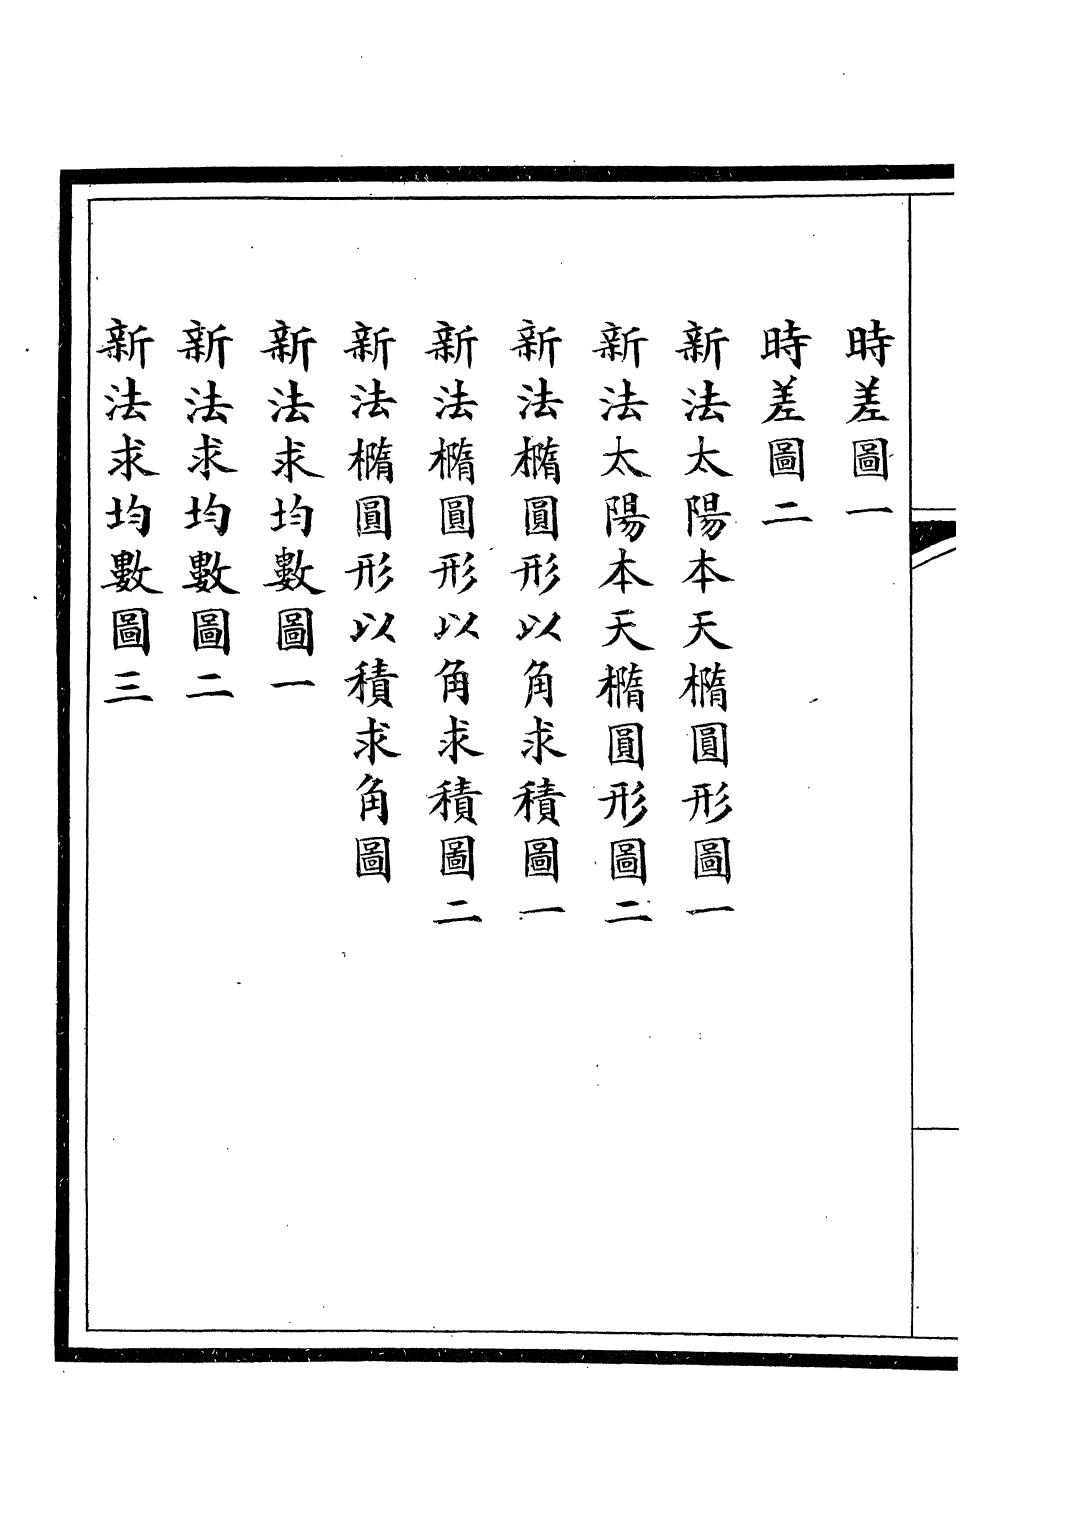 時差圖一
時差圖二
新法太陽本天橢圓形圖一
新法太陽本天橢圓形圖二
新法橢圓形以角求積圖一
新法橢圓形以角求積圖二
新法橢圓形以積求角圖
新法求均數圖一
新法求均數圖二
新法求均數圖三